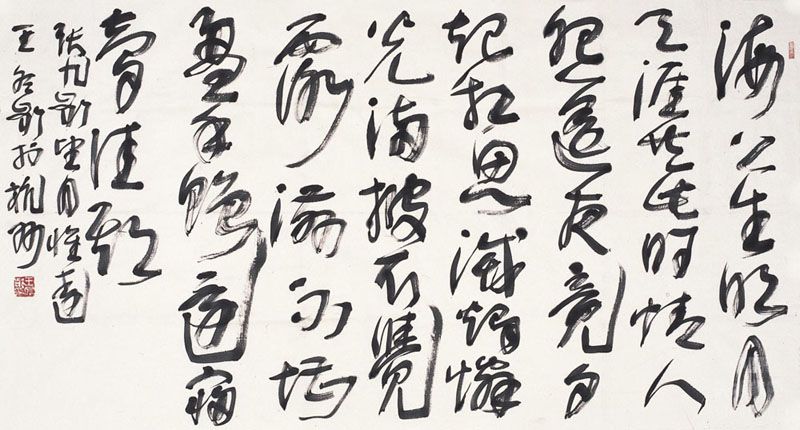 海上生明月
天涯共此時情人
怨遥夜竟夕
起相思滅燭憐
光满披衣覺
露滋不堪
盈手贈還寢
夢佳期
張九齡望月懷遠
王冬齡於杭州